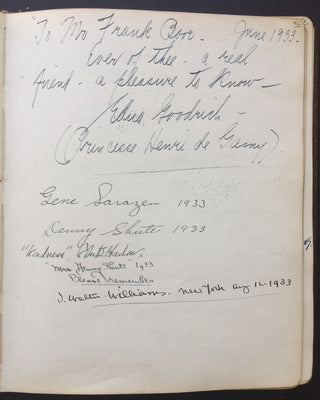 To Mr Frank Boor - June 1933 -
Ever of thee - a real
friend - a pleasure to know -
Edna Goodrich -
(Princesse Henri de
Gene Sarazen 1933
Denny Shute 1933
"Kindness"
"Mrs Denny Shute" 1933
Please remember
J. Walter Williams - New York Aug 12 - 1933